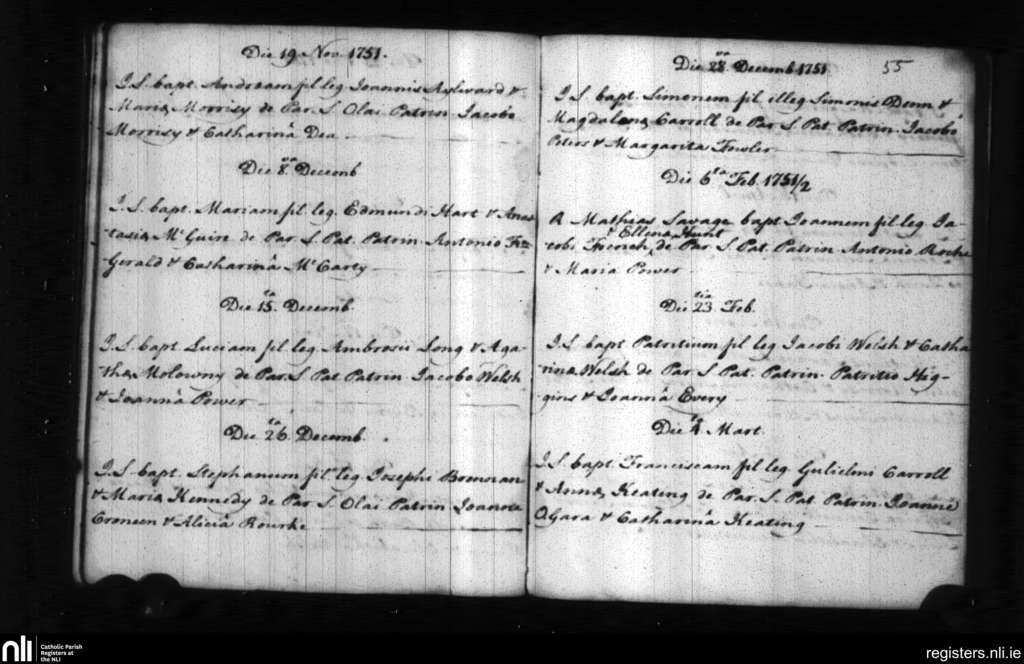 Die 19 Nov. 1751.
I.S. bapt. Andream fil leg Joannis Aylward &
Mariæ Morrisy de Par. S. Olai. Patrin Jacobo
Morrisy & Catharinâ Dea.
Die 8.va Decemb
I.S. bapt. Mariam fil. leg. Edmundi Hart & Anas
tasiæ McGuire de Par. S. Pat. Patrin Antonio Fitz
Gerald & Catharinâ McCarty
Die 15.ta Decemb.
I.S. bapt Luciam fil leg Ambrosii Long & Aga-
thæ Molowny de Par. S Pat Patrin Jacobo Welsh
& Joannâ Power
Die 26.ta Decemb.
I.S. bapt. Stephanum fil leg Josephi Brennan
& Mariæ Kennedy de Par S. Olai Patrin Joanne
Croneen & Aliciâ Rourke
55
Die 28.va Decemb 1751
I.S. bapt. Simonem fil illeg Simonis Dunn &
Magdalenæ Carroll de Par S. Pat Patrin. Jacobo
Peters & Margarita Fowler
Die 6.ta Feb. 1751/2
R Mathias Savage bapt Joannem fil leg Ja-
& Ellenæ Hunt
cobi French, de Par S. Pat. Patrin Antonio Roche
& Maria Power
Die 23.tia Feb.
I.S. bapt Patritium fil leg Jacobi Welsh & Catha
rinæ Welsh de Par S Pat. Patrin. Patritio Hig-
gins & Joannâ Every
Die 4.ta Mart.
I.S. bapt. Franciscam fil leg. Gulielmi Carroll
& Annæ Keating de Par. S. Pat Patrin Joanne
OGara & Catharinâ Keating
nli
Catholic Parish
Registers at
the NLI
registers.nli.ie